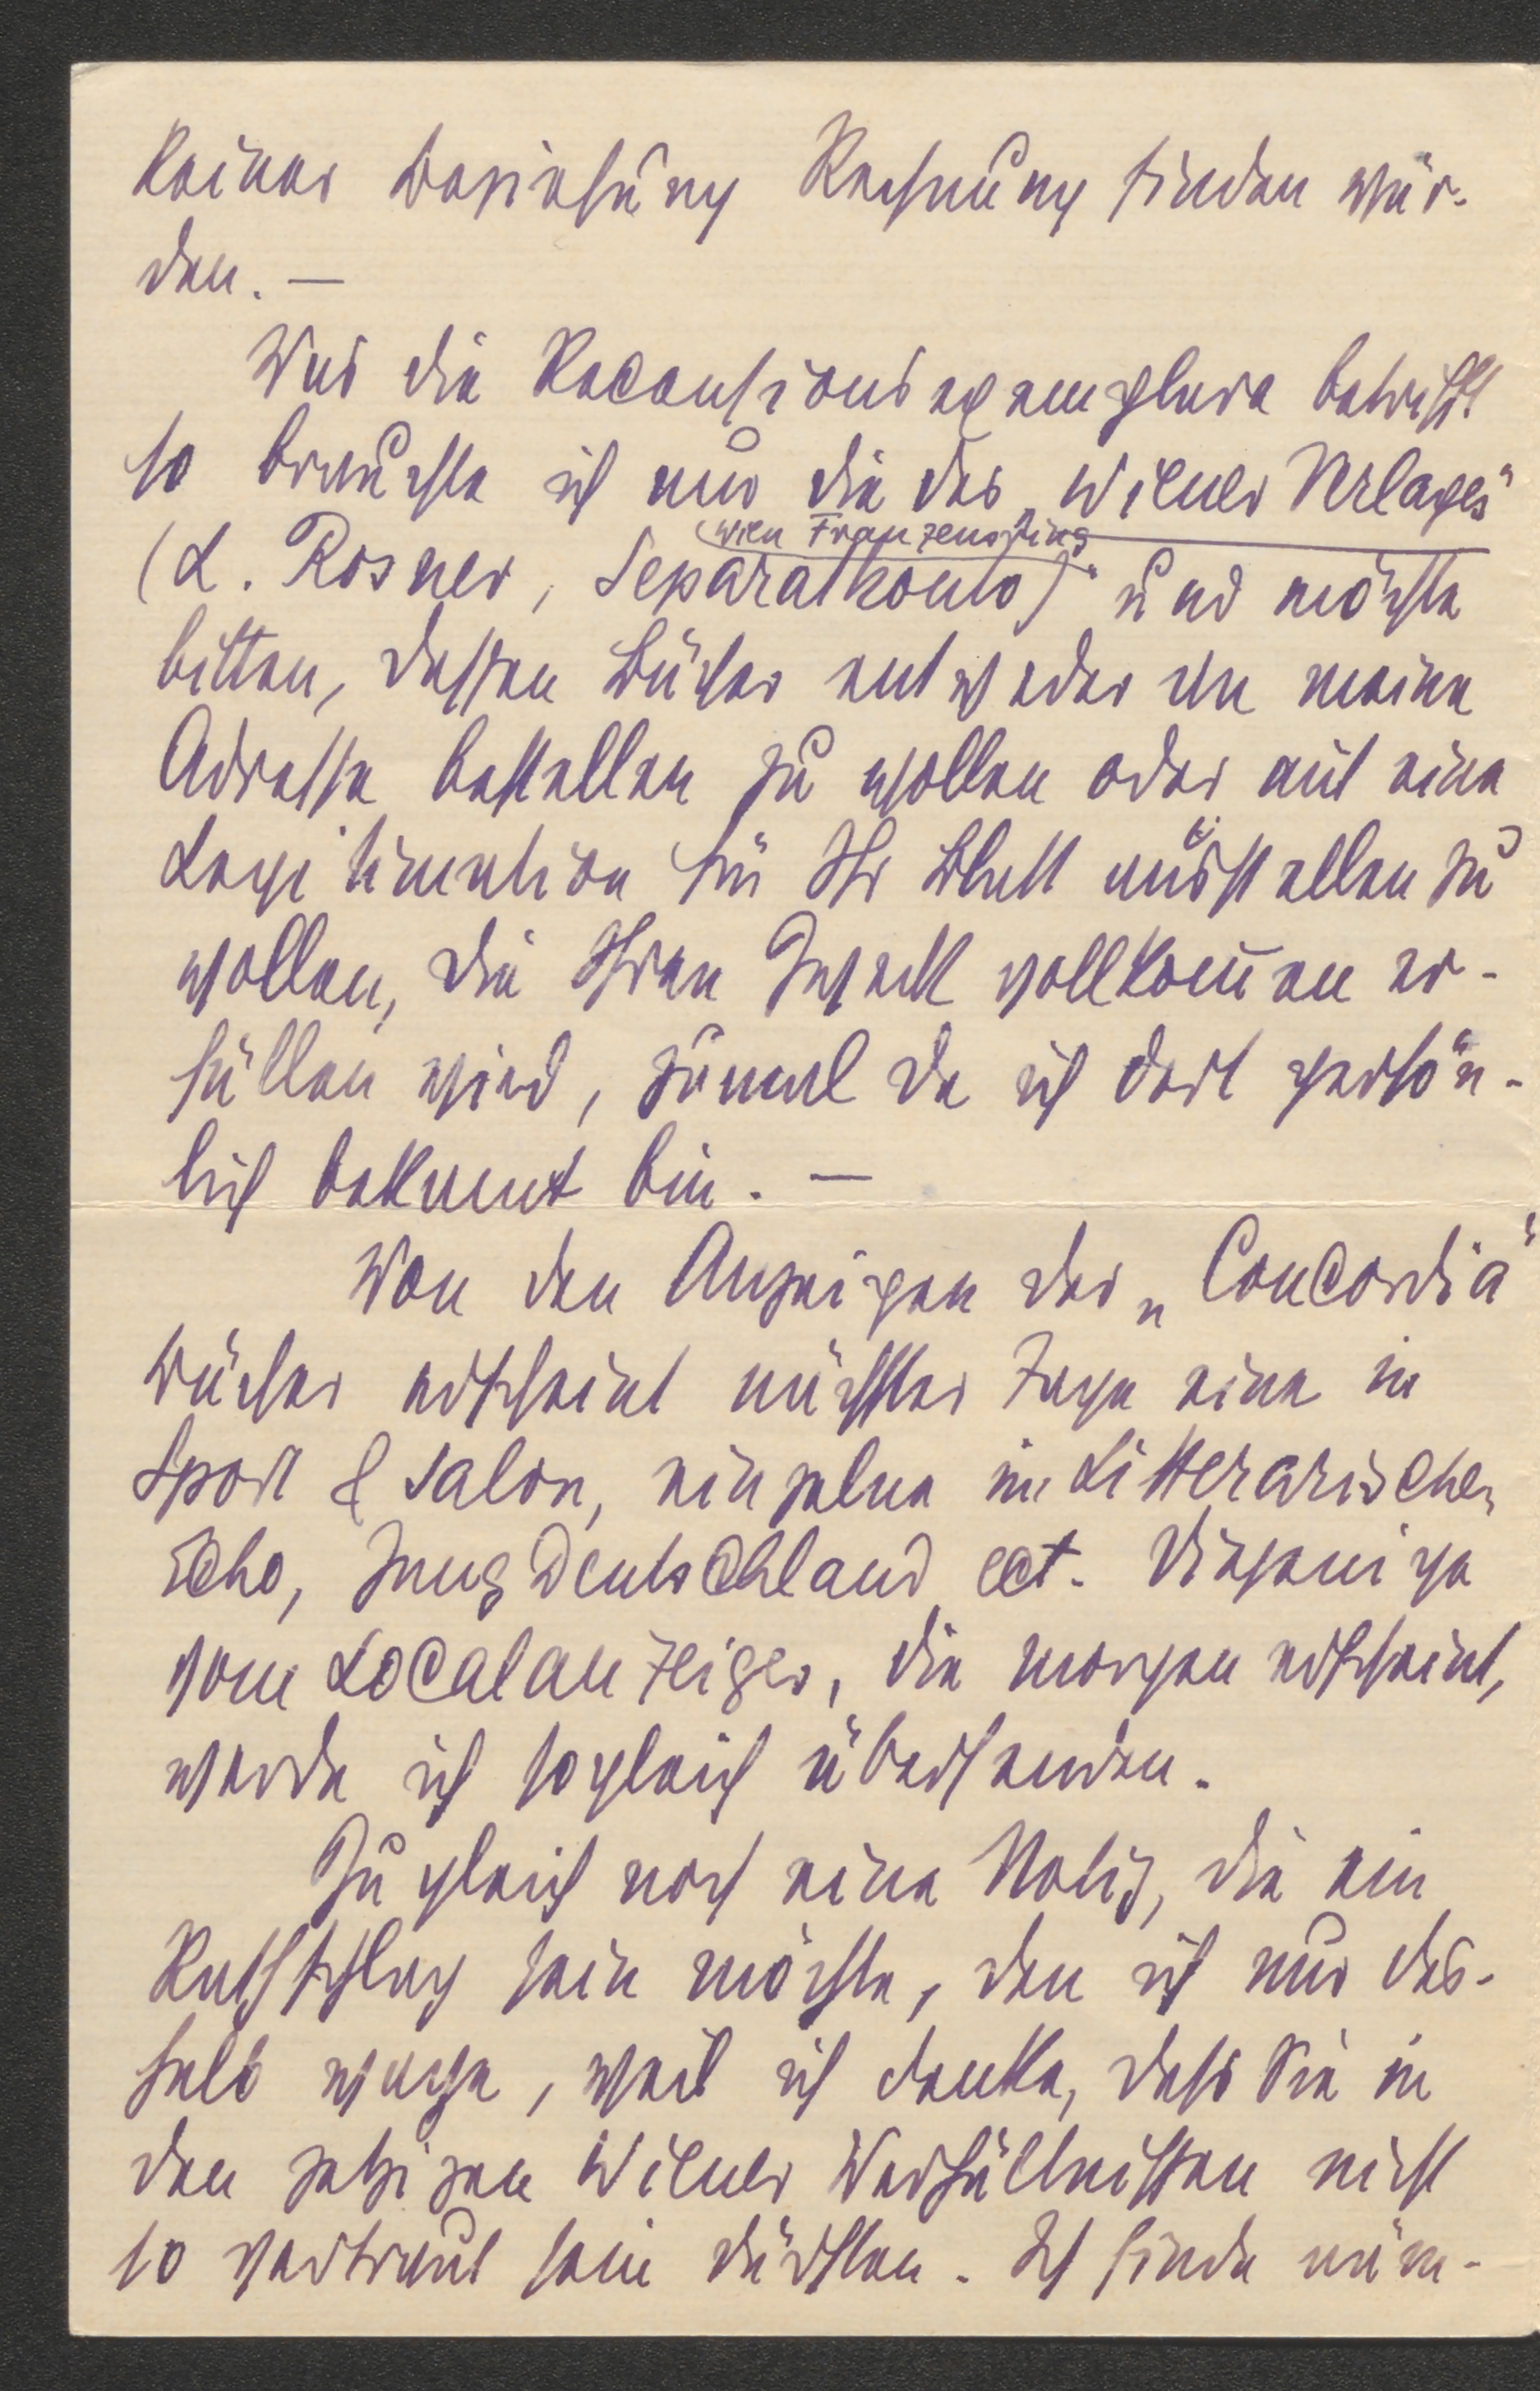 keiner Beziehung Rechnung finden wür-
den. —
Was die Recensionsexemplare betrifft
so brauchte ich nur die des „Wiener Verlages"
(L. Rosner, Separatkonto)" und möchte
Wien Franzensring
bitten, dessen Bücher entweder an meine
Adresse bestellen zu wollen oder mit eine
Legitimation für Ihr Blatt ausstellen zu
wollen, die Ihren Zweck vollkom̅en er-
füllen wird, zumal da ich dort persön-
lich bekannt bin. —
Von den Anzeigen der „Concordia"
Bücher erscheint nächster Tage eine in
Sport & Salon, einzelne im Litterarischen
Echo, Jung Deutschland ect. Diejenige
vom Localanzeiger, die morgen erscheint,
werde ich sogleich übersenden.
Zugleich noch eine Notiz, die ein
Rathschlag sein möchte, den ich nur des-
halb wage, weil ich denke, dass Sie in
den jetzigen Wiener Verhältnissen nicht
so vertraut sein dürften. Ich finde näm-